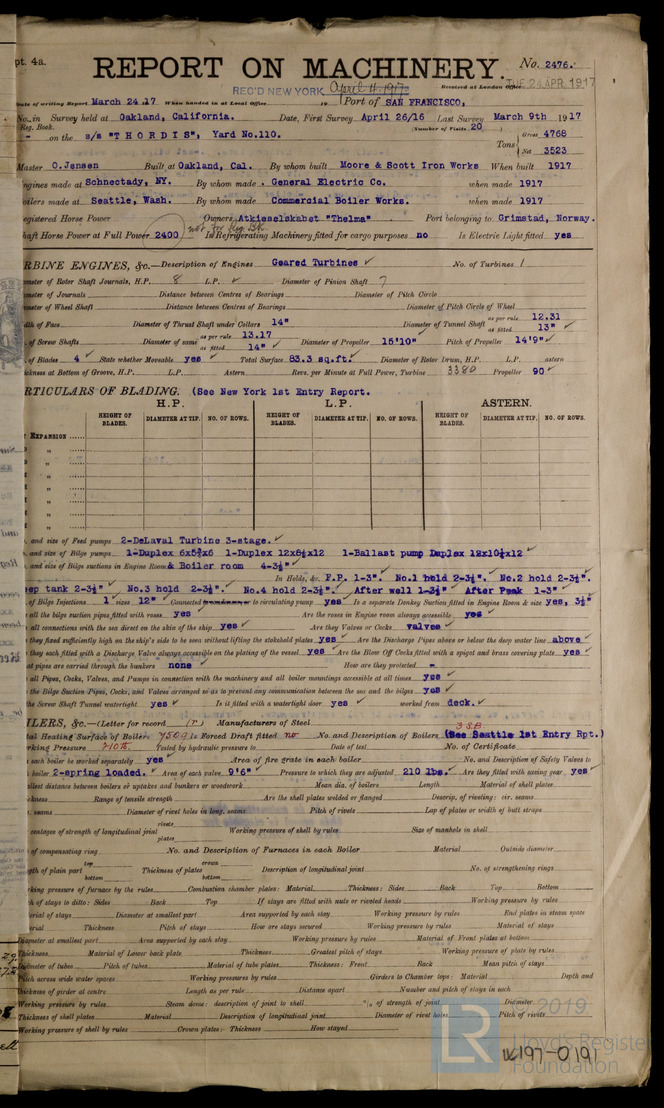 pt. 4a.
REPORT ON MACHINERY.
No. 2476.
REC'D NEW YORK April 4. 1917
Received at London Office TUE 24 APR 1917
Date of writing Report March 24.17 When handed in at Local Office 19 Port of SAN FRANCISCO,
No. in Survey held at Oakland, California. Date, First Survey April 26/16 Last Survey March 9th 1917
Reg. Book. (Number of Visits 20 )
on the s/s "THORDIS", Yard No.110. Tons Gross 4768 Net 3523
Master O.Jensen Built at Oakland, Cal. By whom built Moore & Scott Iron Works When built 1917
Engines made at Schnectady, NY. By whom made General Electric Co. when made 1917
Boilers made at Seattle, Wash. By whom made Commercial Boiler Works. when made 1917
Registered Horse Power Owners Atkieselskabet "Thelma" Port belonging to Grimstad, Norway.
Shaft Horse Power at Full Power 2400 Is Refrigerating Machinery fitted for cargo purposes no Is Electric Light fitted yes
TURBINE ENGINES, &c.—Description of Engines Geared Turbines No. of Turbines 1
Diameter of Rotor Shaft Journals, H.P. 8 L.P. Diameter of Pinion Shaft 7
Diameter of Journals Distance between Centres of Bearings Diameter of Pitch Circle
Diameter of Wheel Shaft Distance between Centres of Bearings Diameter of Pitch Circle of Wheel
Width of Face Diameter of Thrust Shaft under Collars 14" Diameter of Tunnel Shaft as per rule 12.31 as fitted 13"
of Screw Shafts Diameter of same as per rule 13.17 as fitted 14" Diameter of Propeller 15'10" Pitch of Propeller 14'9"
of Blades 4 State whether Moveable yes Total Surface 83.3 sq.ft. Diameter of Rotor Drum, H.P. L.P. astern
Thickness at Bottom of Groove, H.P. L.P. Astern Revs. per Minute at Full Power, Turbine 3380 Propeller 90
PARTICULARS OF BLADING. (See New York 1st Entry Report.
H.P. L.P. ASTERN.
HEIGHT OF BLADES. DIAMETER AT TIP. NO. OF ROWS. HEIGHT OF BLADES. DIAMETER AT TIP. NO. OF ROWS. HEIGHT OF BLADES. DIAMETER AT TIP. NO. OF ROWS.
EXPANSION
and size of Feed pumps 2-DeLaval Turbine 3-stage.
and size of Bilge pumps 1-Duplex 6x5¾x6 1-Duplex 12x8½x12 1-Ballast pump Duplex 12x10½x12
and size of Bilge suctions in Engine Room & Boiler room 4-3½"
In Holds, &c. F.P. 1-3". No.1 hold 2-3½". No.2 hold 2-3½".
ep tank 2-3½" No.3 hold 2-3½". No.4 hold 2-3½". After well 1-3½" After Peak 1-3"
of Bilge Injections 1 sizes 12" Connected to circulating pump yes Is a separate Donkey Suction fitted in Engine Room & size yes, 3½"
all the bilge suction pipes fitted with roses yes Are the roses in Engine room always accessible yes
all connections with the sea direct on the skin of the ship yes Are they Valves or Cocks valves
they fixed sufficiently high on the ship's side to be seen without lifting the stokehold plates yes Are the Discharge Pipes above or below the deep water line above
they each fitted with a Discharge Valve always accessible on the plating of the vessel yes Are the Blow Off Cocks fitted with a spigot and brass covering plate yes
at pipes are carried through the bunkers none How are they protected -
all Pipes, Cocks, Valves, and Pumps in connection with the machinery and all boiler mountings accessible at all times yes
the Bilge Suction Pipes, Cocks, and Valves arranged so as to prevent any communication between the sea and the bilges yes
the Screw Shaft Tunnel watertight yes Is it fitted with a watertight door yes worked from deck.
BOILERS, &c.—(Letter for record (r) Manufacturers of Steel 3 S.B.
Total Heating Surface of Boilers 7509 Is Forced Draft fitted no No. and Description of Boilers (See Seattle 1st Entry Rpt.)
Working Pressure 210 lb. Tested by hydraulic pressure to Date of test No. of Certificate
each boiler be worked separately yes Area of fire grate in each boiler No. and Description of Safety Valves to
boiler 2-spring loaded. Area of each valve 9'6" Pressure to which they are adjusted 210 lbs. Are they fitted with easing gear yes
Smallest distance between boilers or uptakes and bunkers or woodwork Mean dia. of boilers Length Material of shell plates
Thickness Range of tensile strength Are the shell plates welded or flanged Descrip. of riveting: cir. seams
seams Diameter of rivet holes in long. seams Pitch of rivets Lap of plates or width of butt straps
centages of strength of longitudinal joint rivets plates Working pressure of shell by rules Size of manhole in shell
of compensating ring No. and Description of Furnaces in each Boiler Material Outside diameter
Length of plain part top bottom Thickness of plates crown bottom Description of longitudinal joint No. of strengthening rings
Working pressure of furnace by the rules Combustion chamber plates: Material Thickness: Sides Back Top Bottom
Pitch of stays to ditto: Sides Back Top If stays are fitted with nuts or riveted heads Working pressure by rules
Material of stays Diameter at smallest part Area supported by each stay Working pressure by rules End plates in steam space
Material Thickness Pitch of stays How are stays secured Working pressure by rules Material of stays
Diameter at smallest part Area supported by each stay Working pressure by rules Material of Front plates at bottom
Thickness Material of Lower back plate Thickness Greatest pitch of stays Working pressure of plate by rules
Diameter of tubes Pitch of tubes Material of tube plates Thickness: Front Back Mean pitch of stays
Pitch across wide water spaces Working pressures by rules Girders to Chamber tops: Material Depth and
thickness of girder at centre Length as per rule Distance apart Number and pitch of stays in each
Working pressure by rules Steam dome: description of joint to shell % of strength of joint Diameter
Thickness of shell plates Material Description of longitudinal joint Diameter of rivet holes Pitch of rivets
Working pressure of shell by rules Crown plates: Thickness How stayed
LR 2019
Lloyd's Register
Foundation
W197-0191